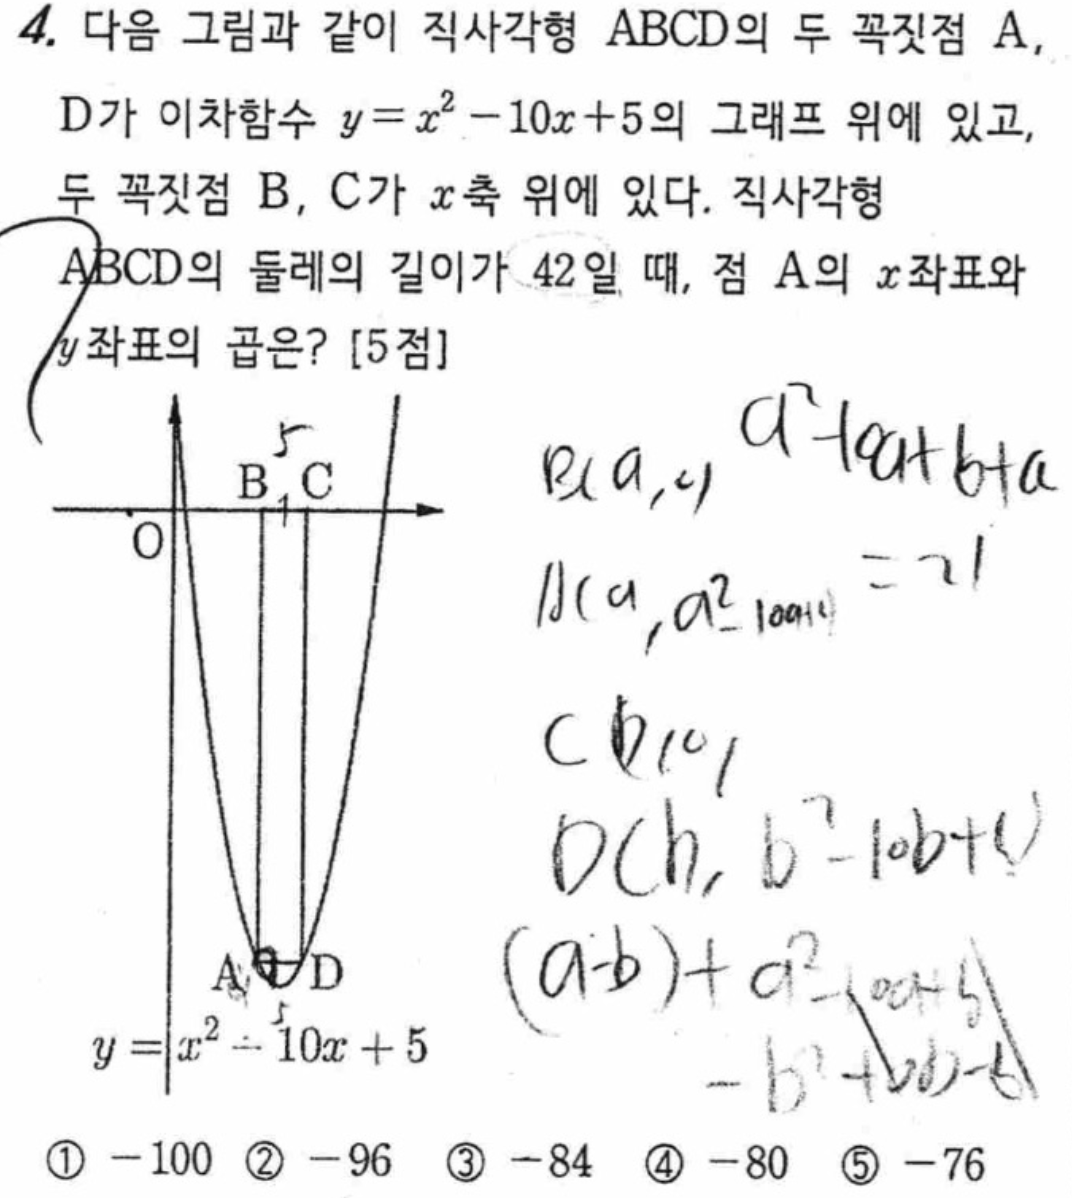 4. 다음 그림과 같이 직사각형 ABCD의 두 꼭짓점 A,
D가 이차함수 y=x²-10x+5의 그래프 위에 있고,
두 꼭짓점 B, C가 x축 위에 있다. 직사각형
ABCD의 둘레의 길이가 42일 때, 점 A의 x좌표와
y좌표의 곱은? [5점]
5
B C
O
A D
5
y=x²-10x+5
a²-10a+5+a
B(a,0)
=21
A(a, a²-10a+
C b,0)
D(b, b²-10b+
(a-b)+a²-10a+5
-b²+10b-5
① -100 ② -96 ③ -84 ④ -80 ⑤ -76